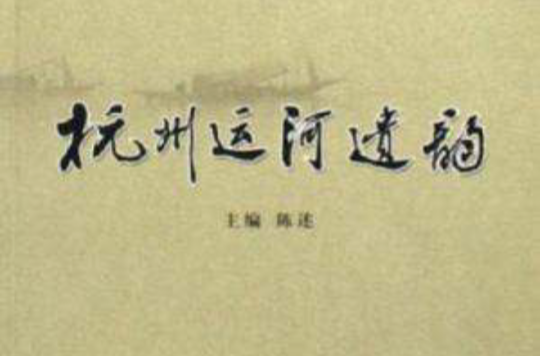 杭州运河遗韵
主编 陈述